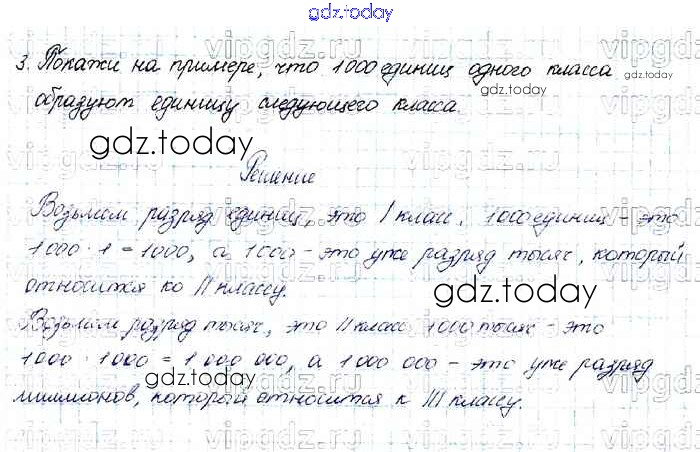 gdz.today
3. Покажи на примере, что 1000 единиц одного класса
gdz.today
образуют единицу следующего класса.
gdz.today
Решение
Возьмем разряд единиц, это I класс. 1000 единиц – это
1000 · 1 = 1000, а 1000 – это уже разряд тысяч, который
относится ко II классу.
gdz.today
Возьмем разряд тысяч, это II класс 1000 тысяч – это
1000 · 1000 = 1 000 000, а 1 000 000 – это уже разряд
gdz.today
миллионов, который относится к III классу.